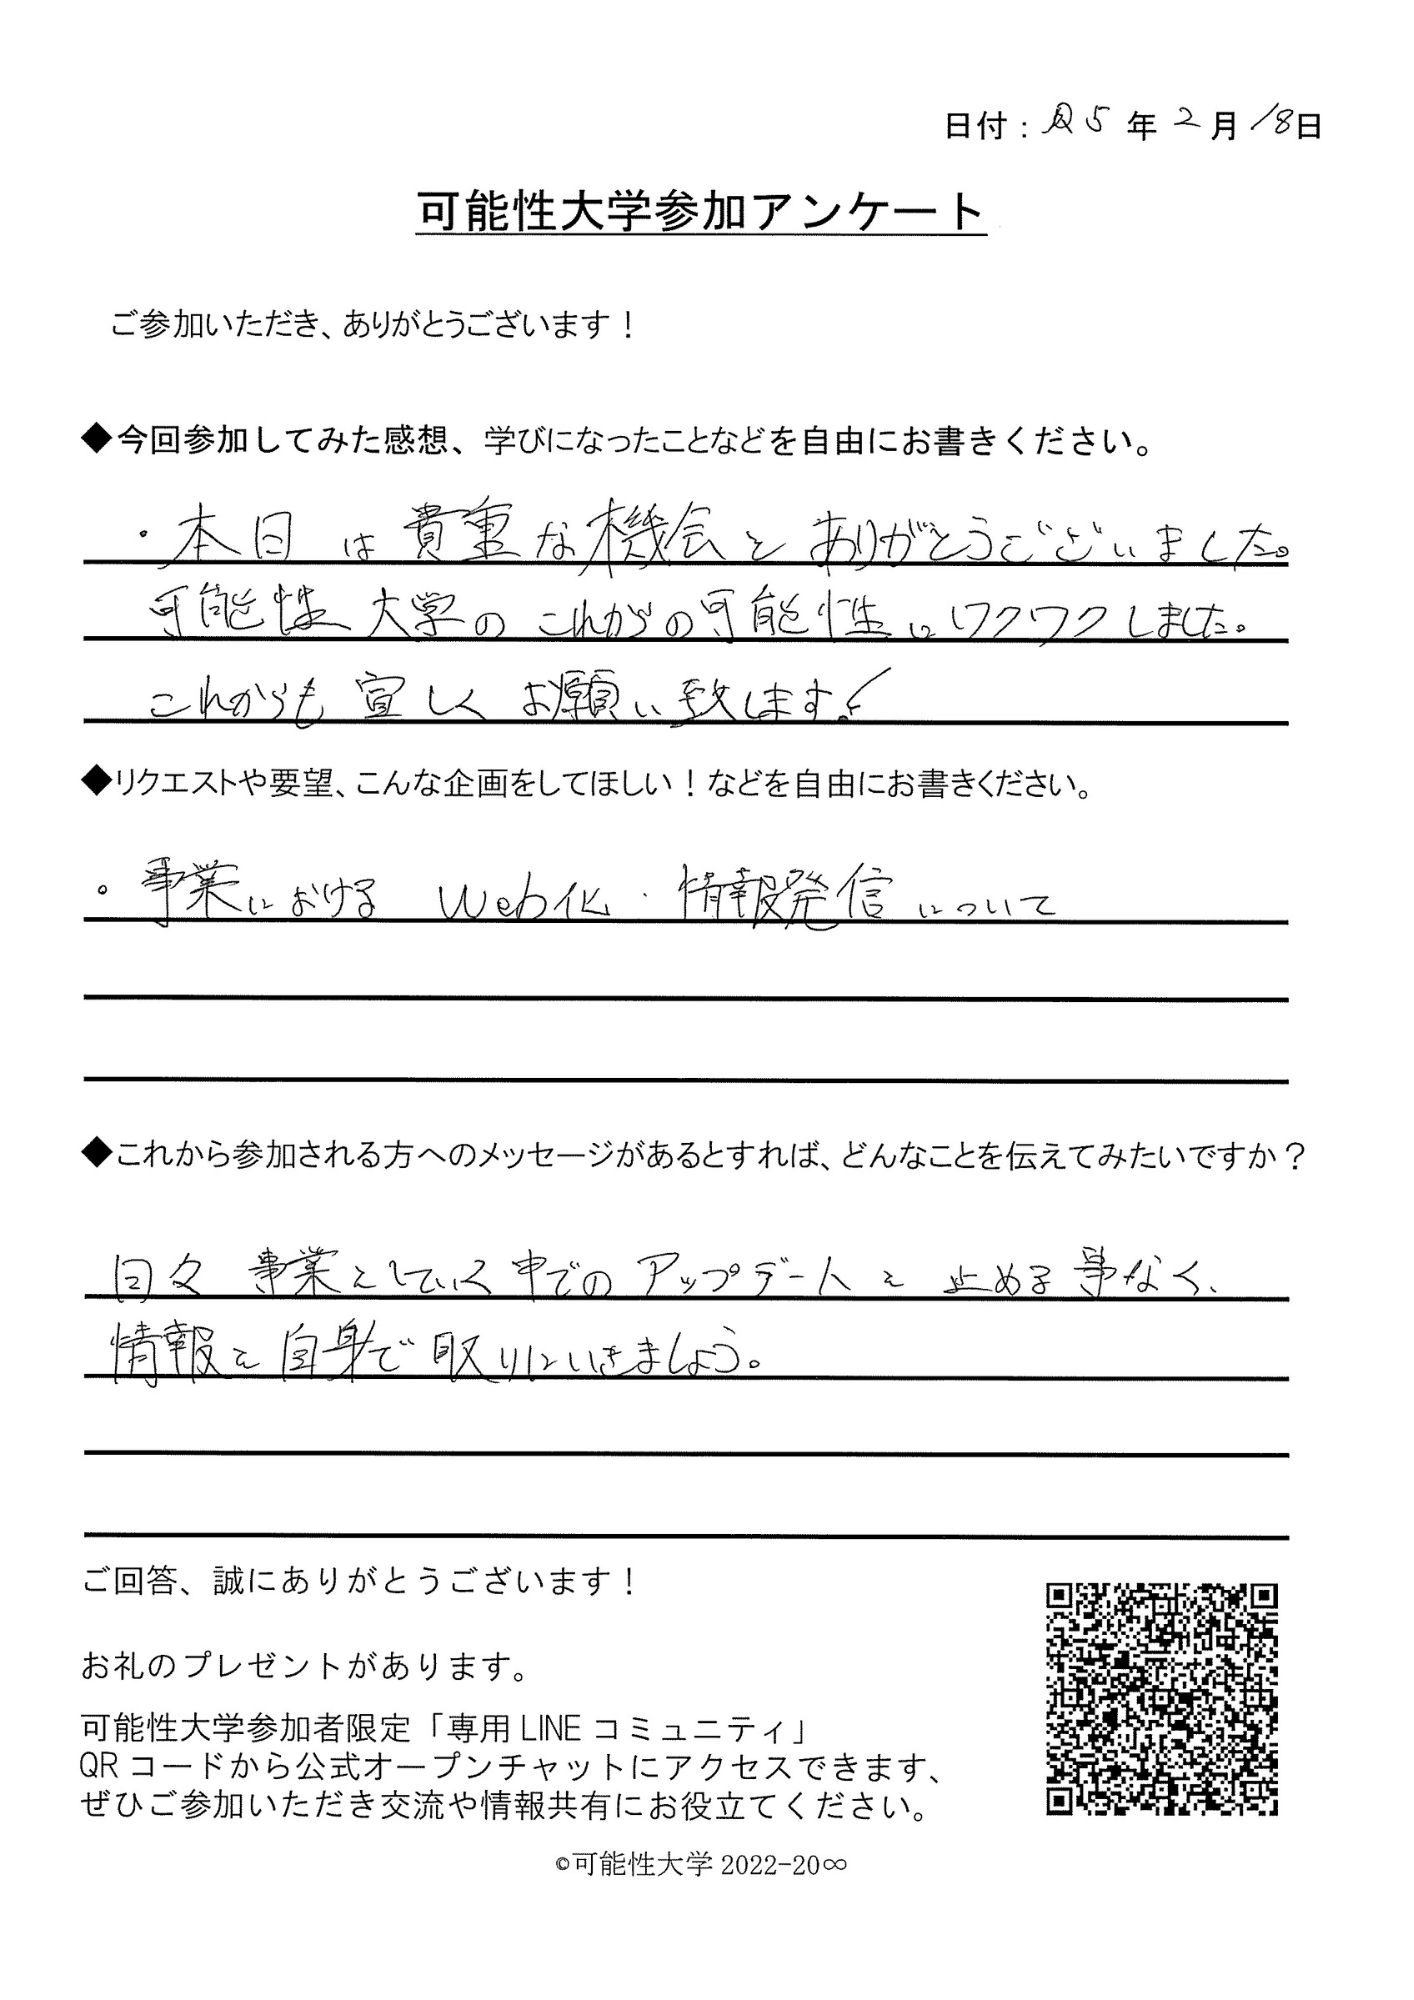 日付：R5年2月18日
可能性大学参加アンケート
ご参加いただき、ありがとうございます！
◆今回参加してみた感想、学びになったことなどを自由にお書きください。
・本日は貴重な機会をありがとうございました。
可能性大学のこれからの可能性にワクワクしました。
これからも宜しくお願い致します！
◆リクエストや要望、こんな企画をしてほしい！などを自由にお書きください。
・事業における Web化・情報発信について
◆これから参加される方へのメッセージがあるとすれば、どんなことを伝えてみたいですか？
日々事業をしていく中でのアップデートを止める事なく、
情報を自身で取りにいきましょう。
ご回答、誠にありがとうございます！
お礼のプレゼントがあります。
可能性大学参加者限定「専用LINEコミュニティ」
QRコードから公式オープンチャットにアクセスできます、
ぜひご参加いただき交流や情報共有にお役立てください。
©可能性大学 2022-20∞